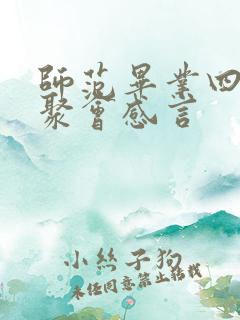 師范畢業四
聚會感言
小絲子狗
未经同意禁止转载